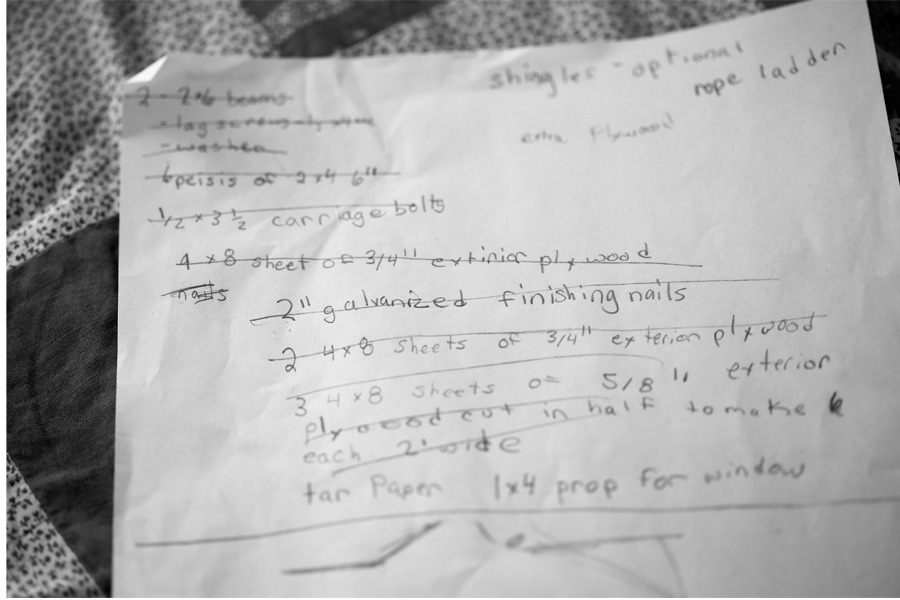 shingles - optional
rope ladder
extra Plywood
2 - 2x6 beams
- lag screws
- washer
6 peisis of 2x4 6"
1/2 x 3 1/2 carriage bolts
4 x 8 sheet of 3/4" extirior plywood
nails
2" galvanized finishing nails
2 4x8 sheets of 3/4" exterior plywood
3 4x8 sheets of 5/8" exterior
plywood cut in half to make 6
each 2' wide
tar Paper 1x4 prop for window